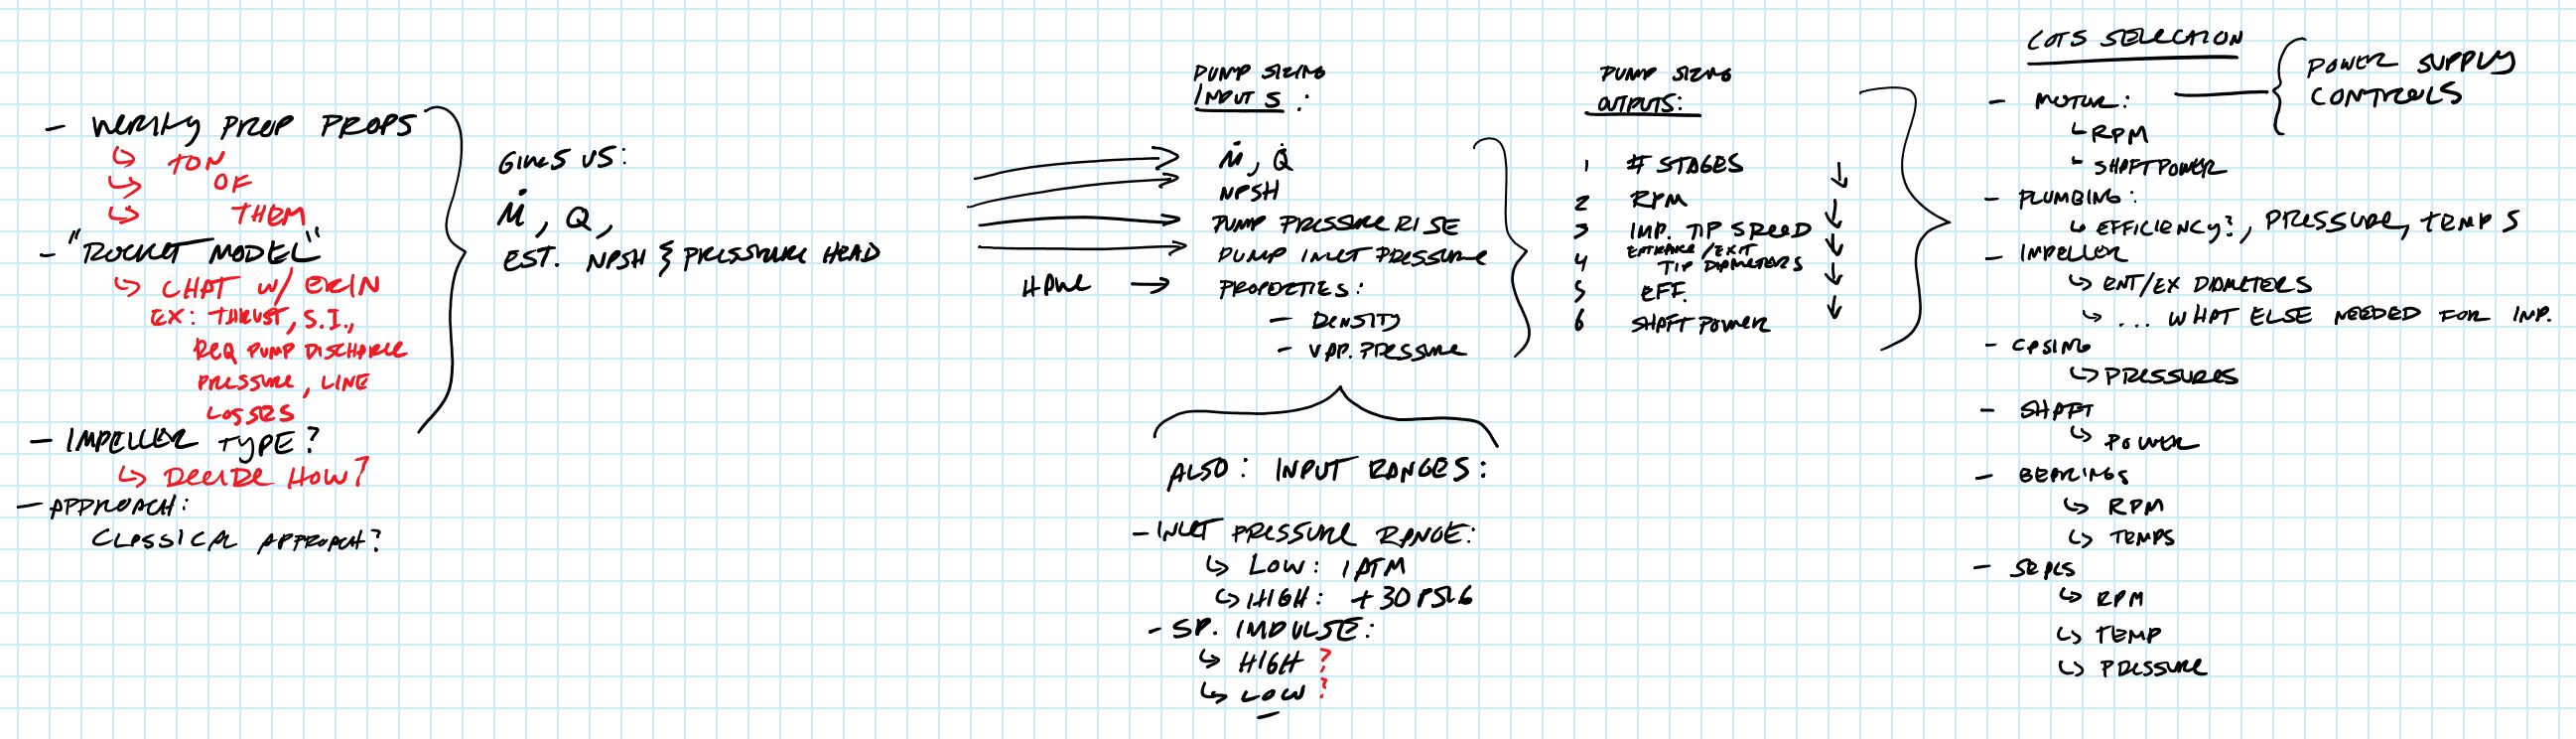 - VERIFY PROP PROPS
↳ TON
↳ OF
↳ THEM
- "ROCKET MODEL"
↳ CHAT W/ ERIN
EX: THRUST, S.I.,
REQ PUMP DISCHARGE
PRESSURE, LINE
LOSSES
- IMPELLER TYPE?
↳ DECIDE HOW?
- APPROACH:
CLASSICAL APPROACH?
GIVES US:
Ṁ, Q,
EST. NPSH } PRESSURE HEAD
HAVE →
PUMP SIZING
INPUTS:
Ṁ, Q
NPSH
PUMP PRESSURE RISE
PUMP INLET PRESSURE
PROPERTIES:
- DENSITY
- VAP. PRESSURE
ALSO: INPUT RANGES:
- INLET PRESSURE RANGE:
↳ LOW: 1 ATM
↳ HIGH: +30 PSIG
- SP. IMPULSE:
↳ HIGH ?
↳ LOW ?
PUMP SIZING
OUTPUTS:
1 # STAGES
2 RPM
3 IMP. TIP SPEED
4 ENTRANCE/EXIT
TIP DIAMETERS
5 EFF.
6 SHAFT POWER
COTS SELECTION
- MOTOR:
↳ RPM
↳ SHAFT POWER
POWER SUPPLY
CONTROLS
- PLUMBING:
↳ EFFICIENCY?, PRESSURE, TEMPS
- IMPELLER
↳ ENT/EX DIAMETERS
↳ ... WHAT ELSE NEEDED FOR IMP.
- CASING
↳ PRESSURES
- SHAFT
↳ POWER
- BEARINGS
↳ RPM
↳ TEMPS
- SEALS
↳ RPM
↳ TEMP
↳ PRESSURE